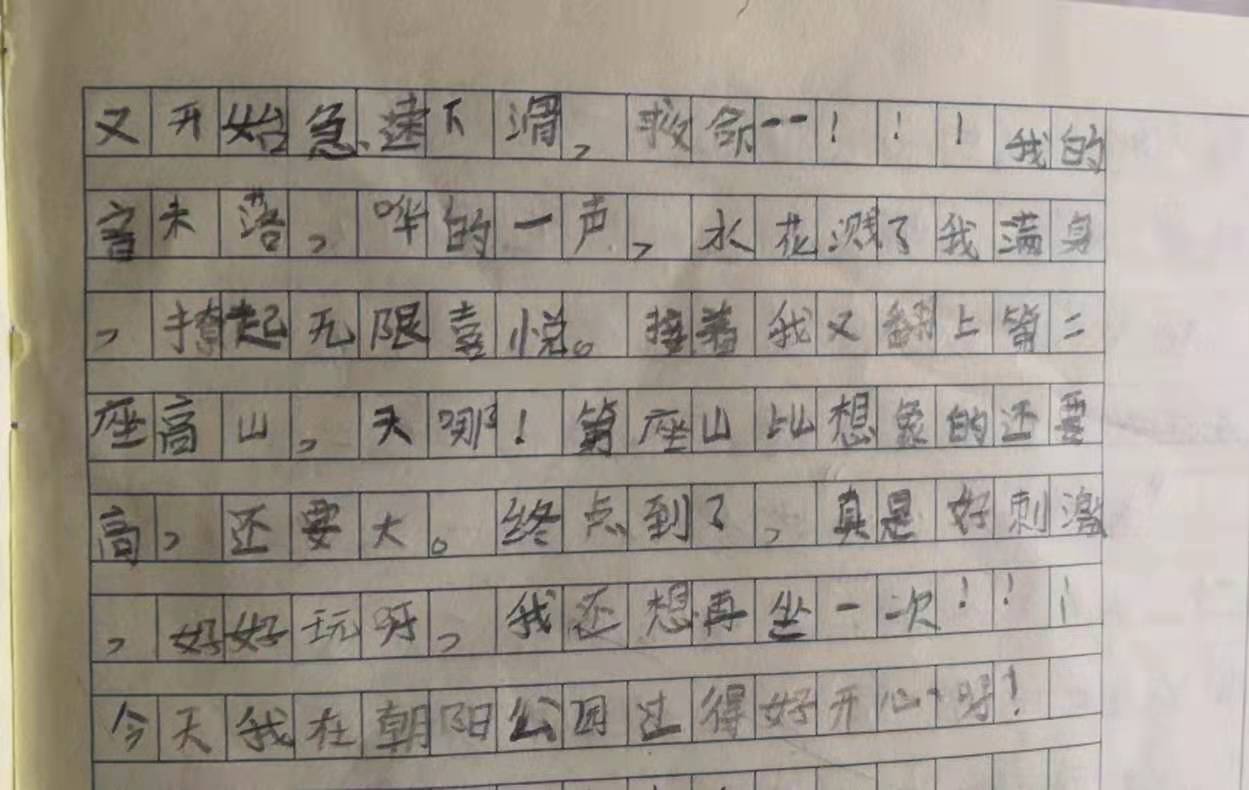 又开始急速下滑，救命--！！！我的
音未落，哗的一声，水花溅了我满身
，撩起无限喜悦。接着我又翻上第二
座高山，天哪！第座山比想象的还要
高，还要大。终点到了，真是好刺激
，好好玩呀，我还想再坐一次！！！
今天我在朝阳公园过得好开心呀！